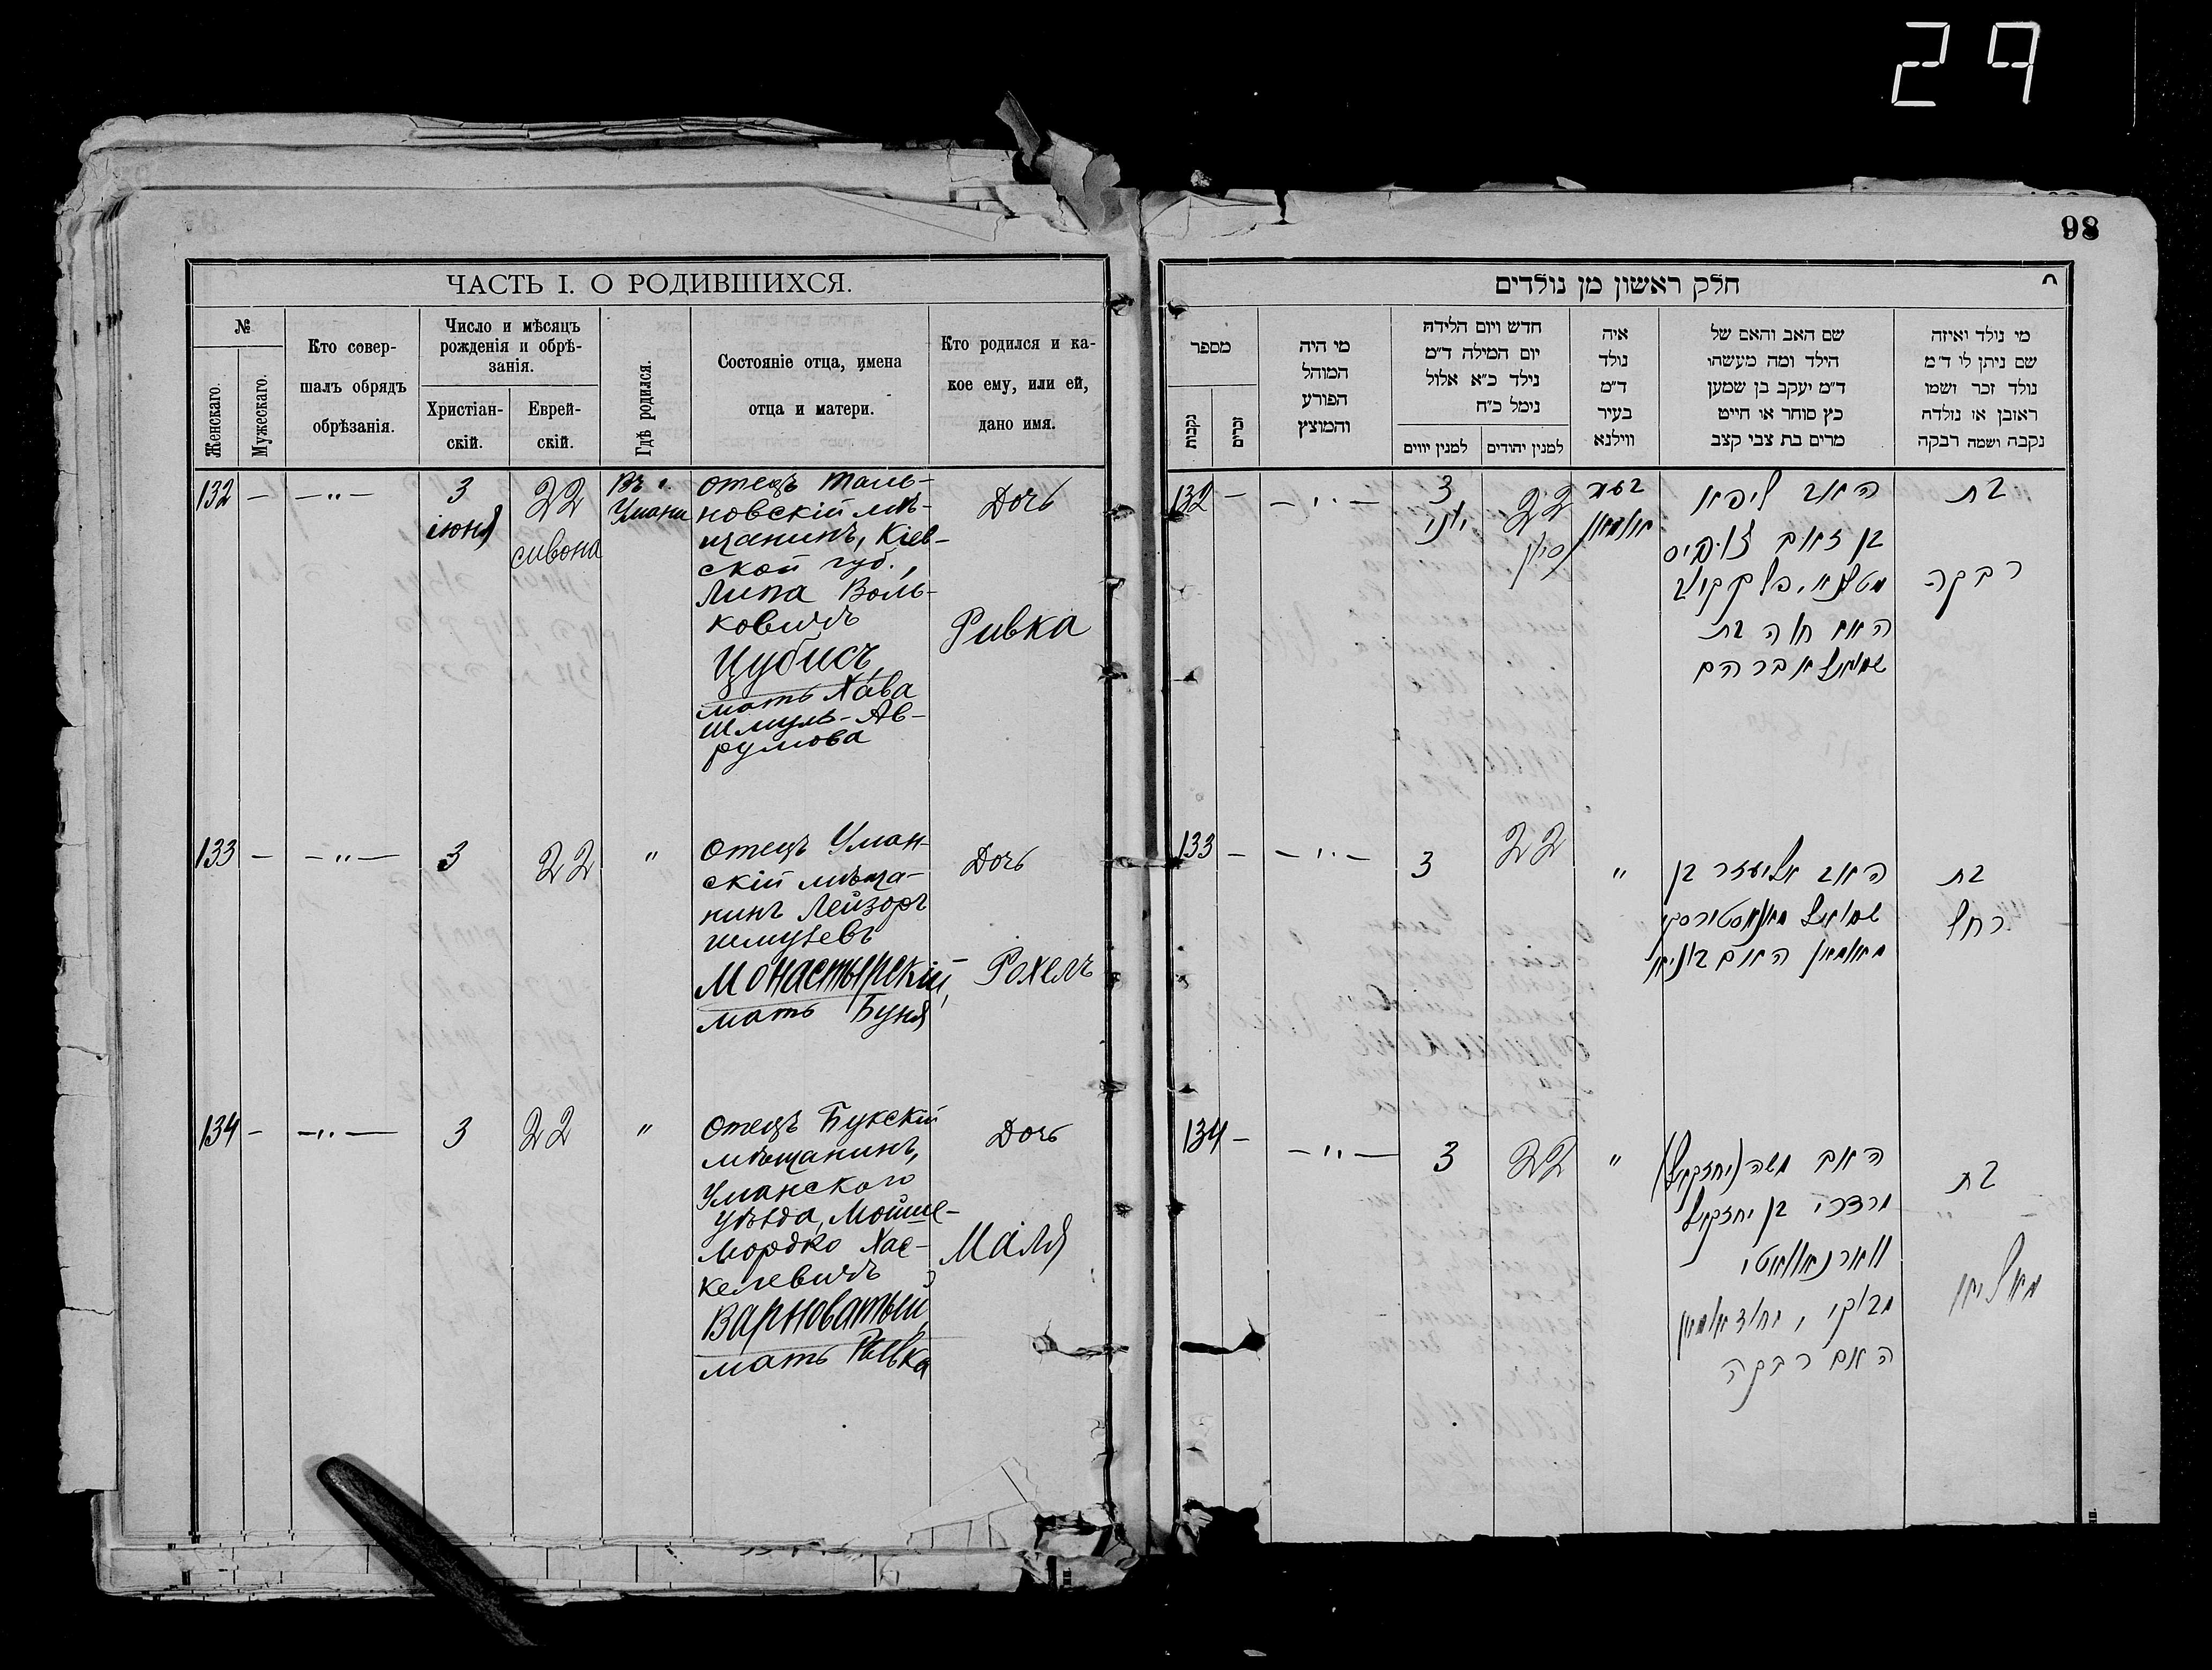 29
98
ЧАСТЬ I. О РОДИВШИХСЯ.
№
Женскаго.
Мужескаго.
Кто совер-
шалъ обрядъ
обрѣзанія.
Число и мѣсяцъ
рожденія и обрѣ-
занія.
Христіан-
скій.
Еврей-
скій.
Гдѣ родился.
Состояніе отца, имена
отца и матери.
Кто родился и ка-
кое ему, или ей,
дано имя.
132 — —"—
3
іюня
22
сивона
Въ г.
Умани
отецъ Таль-
новскій мѣ-
щанинъ, Кіев-
ской губ.,
Липа Воль-
ковичъ
Цубисъ,
мать Хава
Шмуль-Ав-
румова
Дочь
Ривка
133 — —"— 3 22 "
отецъ Уман-
скій мѣща-
нинъ Лейзоръ
Шмулевъ
Монастырскій,
мать Буня
Дочь
Рохель
134 — —"— 3 22 "
отецъ Букскій
мѣщанинъ,
Уманскаго
уѣзда, Мойше-
Мордко Хас-
келевичъ
Варноватый,
мать Ривка
Дочь
Маля
חלק ראשון מן נולדים
מי נולד ואיזה
שם ניתן לו ד״מ
נולד זכר ושמו
ראובן או נולדה
נקבה ושמה רבקה
שם האב והאם של
הילד ומה מעשהו
ד״מ יעקב בן שמען
כץ סוחר או חייט
מרים בת צבי קצב
איה
נולד
ד״מ
בעיר
ווילנא
חדש ויום הלידה
יום המילה ד״מ
נילד כ״א אלול
נימל כ״ח
למנין יהודים
למנין יווים
מי היה
המוהל
הפורע
והמוצץ
מספר
זכרים
נקבות
132 — —"—
3
יוני
22
סיון
בעיר
אומאן
האב ליפא
בן זאב צוביס
האם חוה בת
שמואל אברהם
בת
רבקה
133 — —"— 3 22 "
האב אליעזר בן
שמואל מאנאסטירסקי
מאומאן האם בוניא
בת
רחל
134 — —"— 3 22 "
האב משה (יחזקאל)
מרדכי בן יחזקאל
ווארנאוואטי
מבוקי,
האם רבקה
בת
מאליא